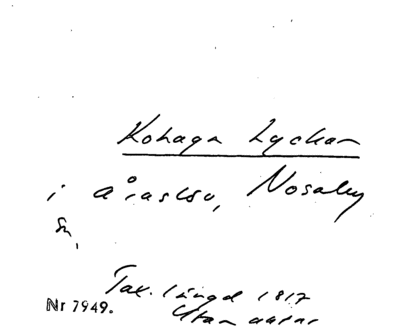 Kohaga Lyckan
i Åraslöv, Nosaby
Sn,
Tax. längd 1817
Utan ägare
Nr 7949.